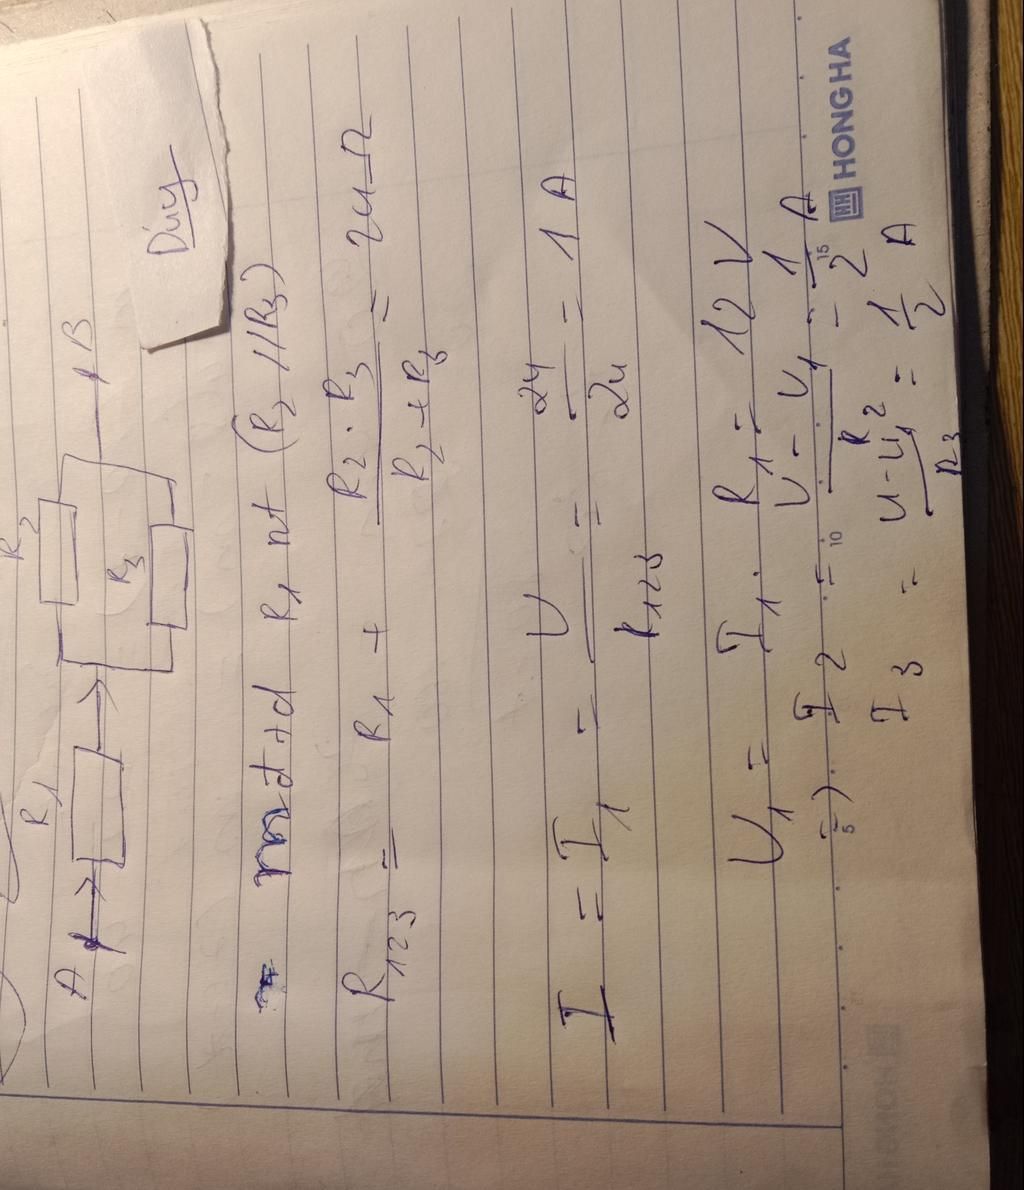 R1
R2
A
B
R3
Duy
mđtđ R1 nt (R2 // R3)
R123 = R1 + R2 . R3 / R2 + R3 = 24 Ω
I = I1 = U / R123 = 24 / 24 = 1 A
U1 = I1 . R1 = 12 V
=) I2 = U - U1 / R2 = 1 / 2 A
I3 = U - U1 / R3 = 1 / 2 A
5 10 15
HH HONG HA